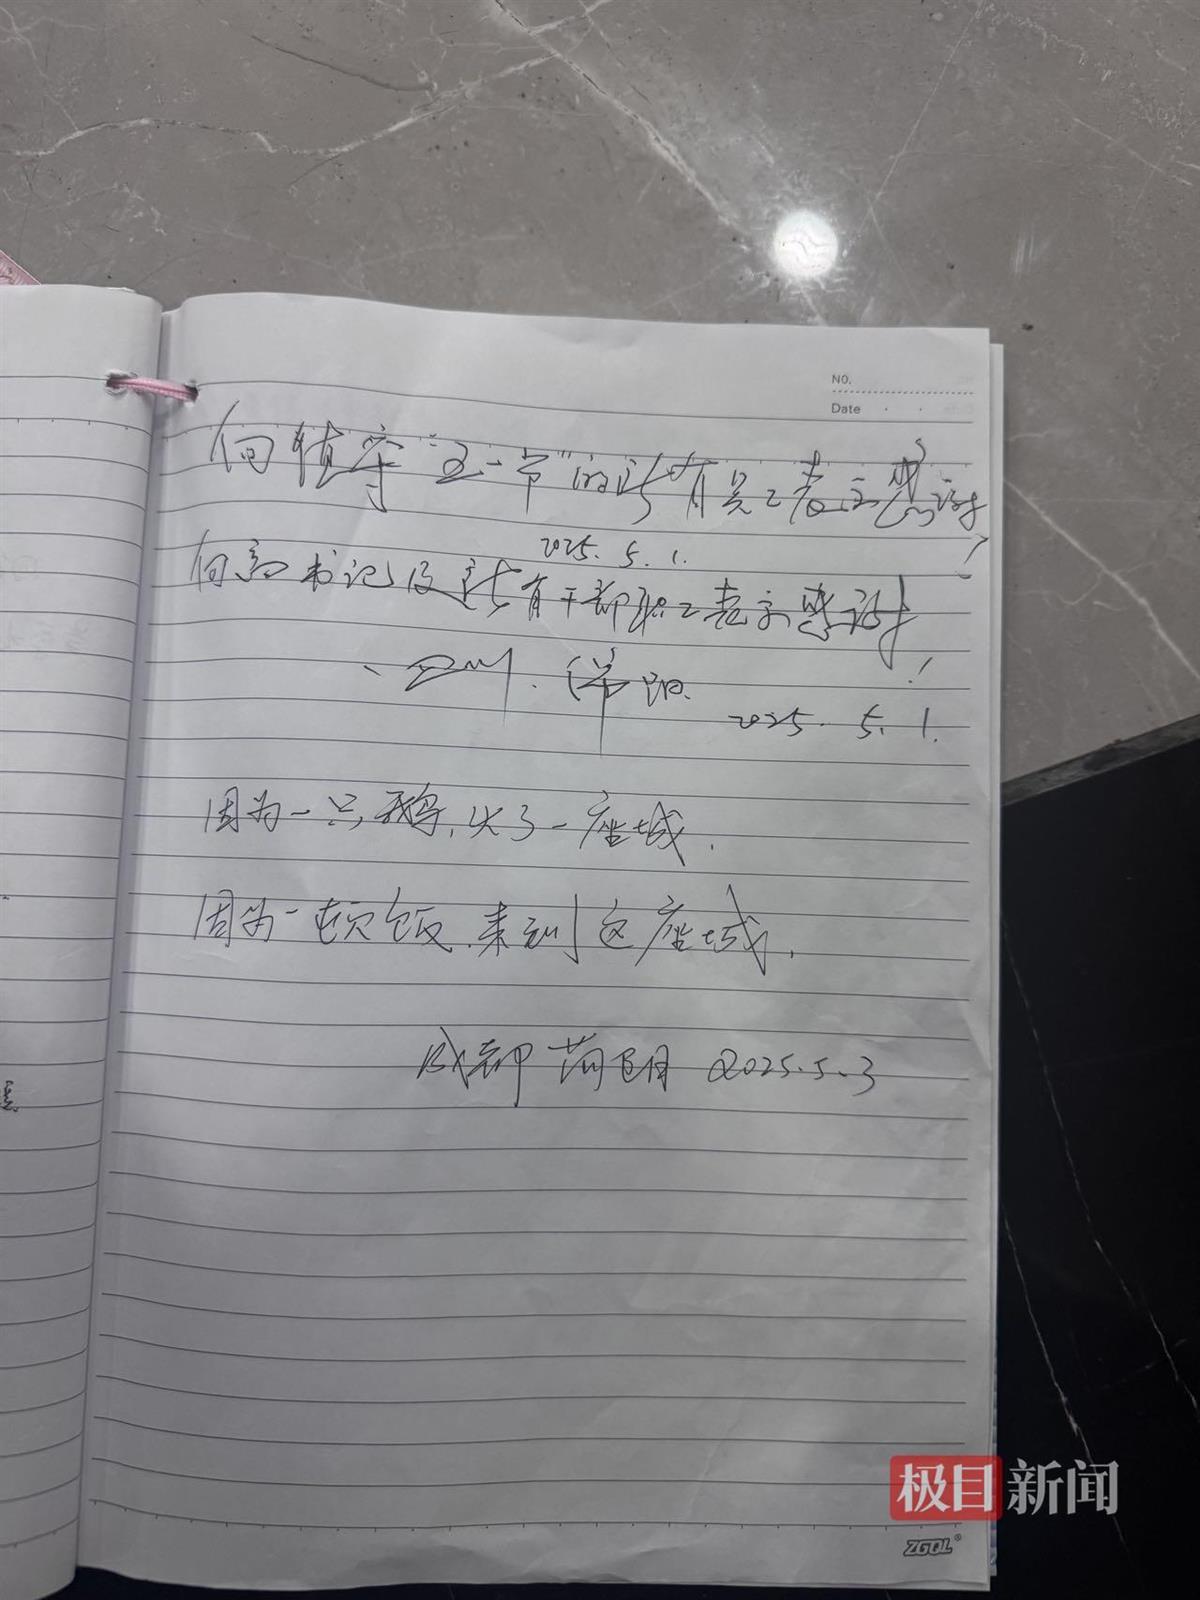 NO.
Date
向值守“五一节”的所有员工表示感谢!
2025. 5. 1.
向 书记及所有干部职工表示感谢!
四川. 绵阳.
2025. 5. 1.
因为一只鹅,火了一座城.
因为一顿饭,来到这座城.
成都 2025.5.3
极目新闻
ZGQL®